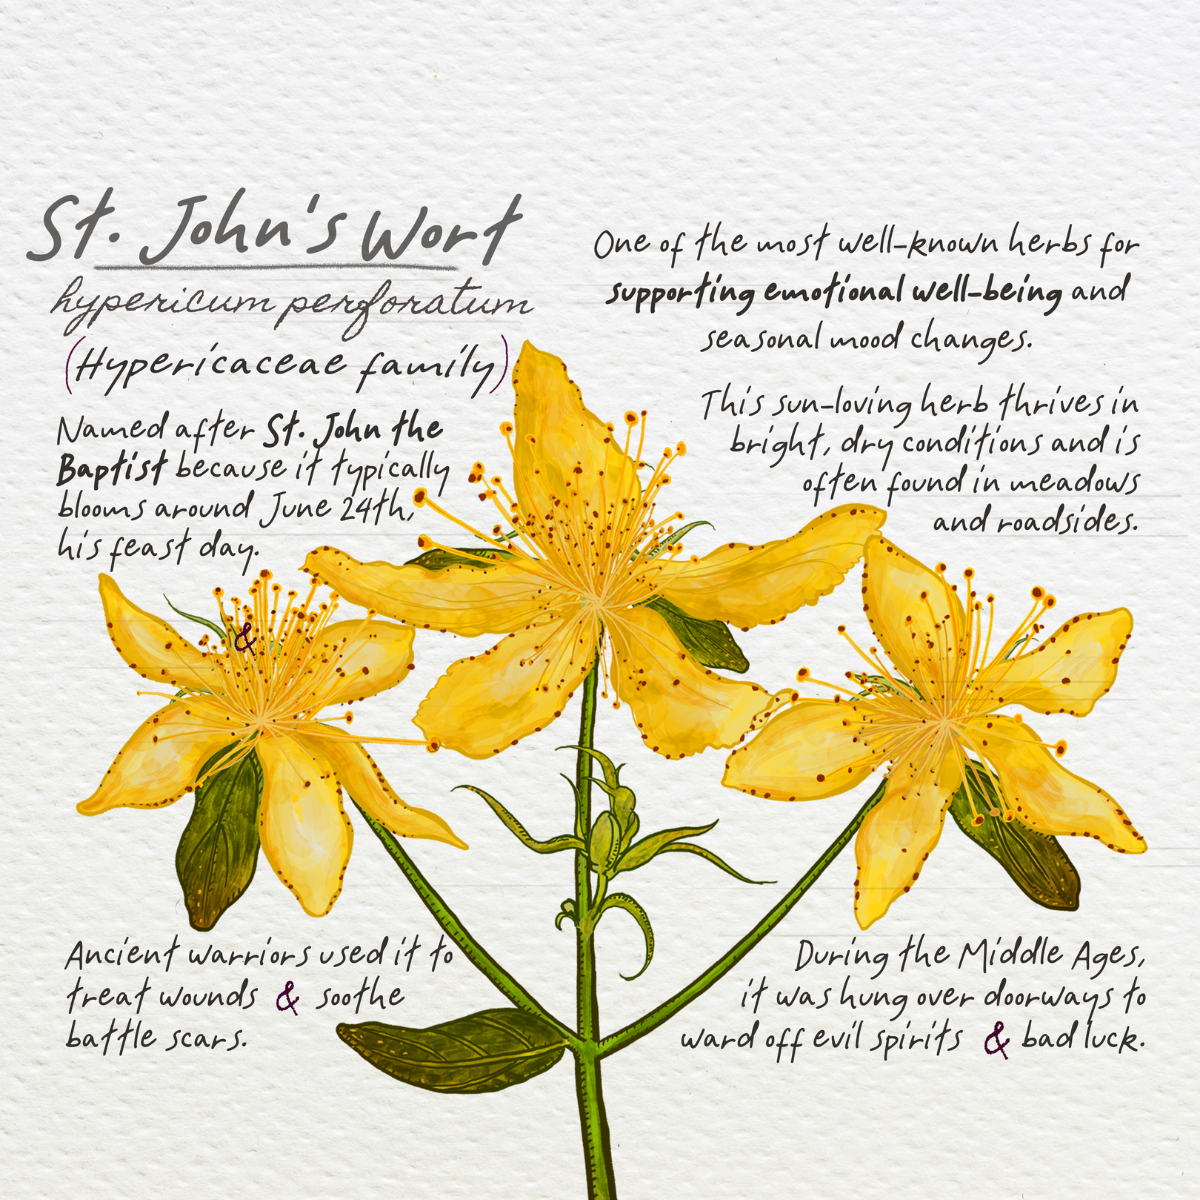 St. John's Wort
hypericum perforatum
(Hypericaceae family)
Named after St. John the
Baptist because it typically
blooms around June 24th,
his feast day.
One of the most well-known herbs for
supporting emotional well-being and
seasonal mood changes.
This sun-loving herb thrives in
bright, dry conditions and is
often found in meadows
and roadsides.
&
Ancient warriors used it to
treat wounds & soothe
battle scars.
During the Middle Ages,
it was hung over doorways to
ward off evil spirits & bad luck.